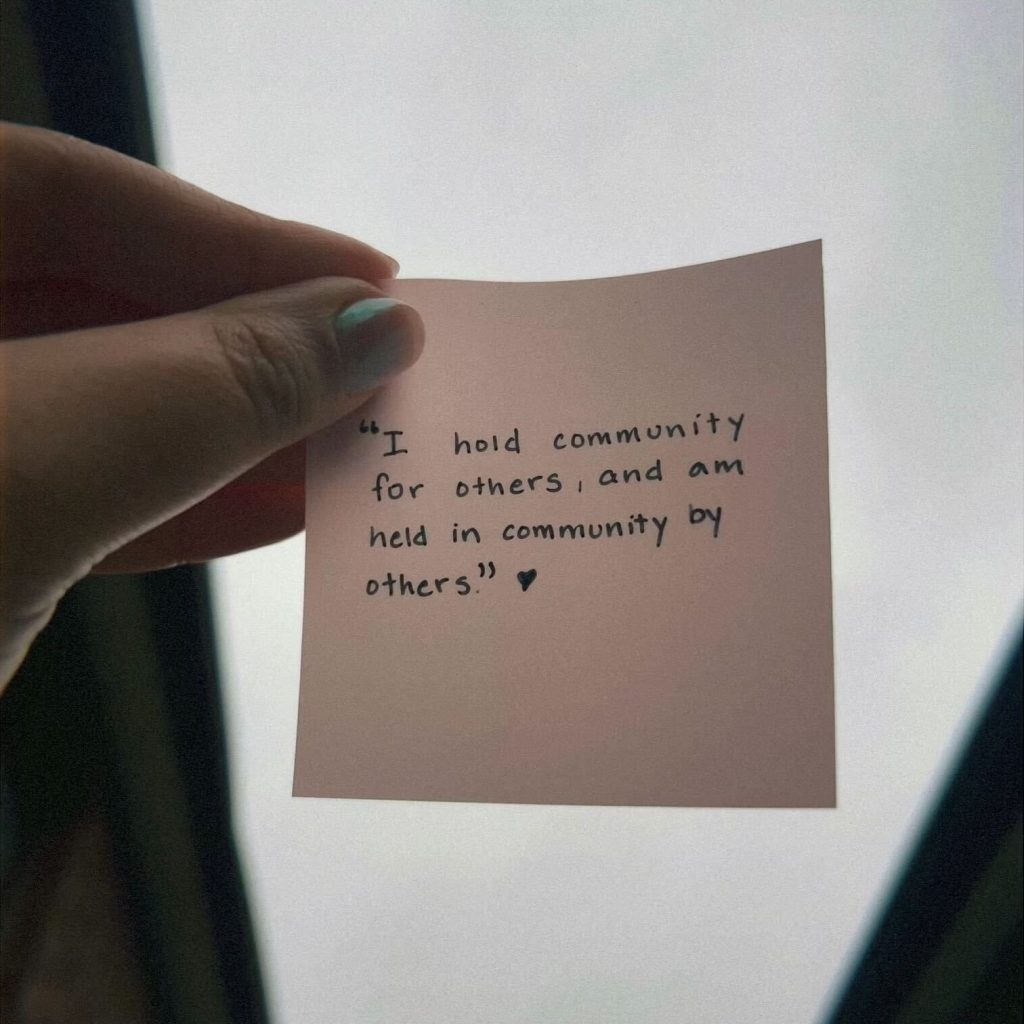 “I hold community
for others, and am
held in community by
others.” ♥